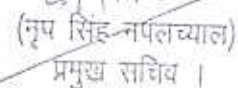 (नृप सिंह नपलच्याल)
प्रमुख सचिव ।